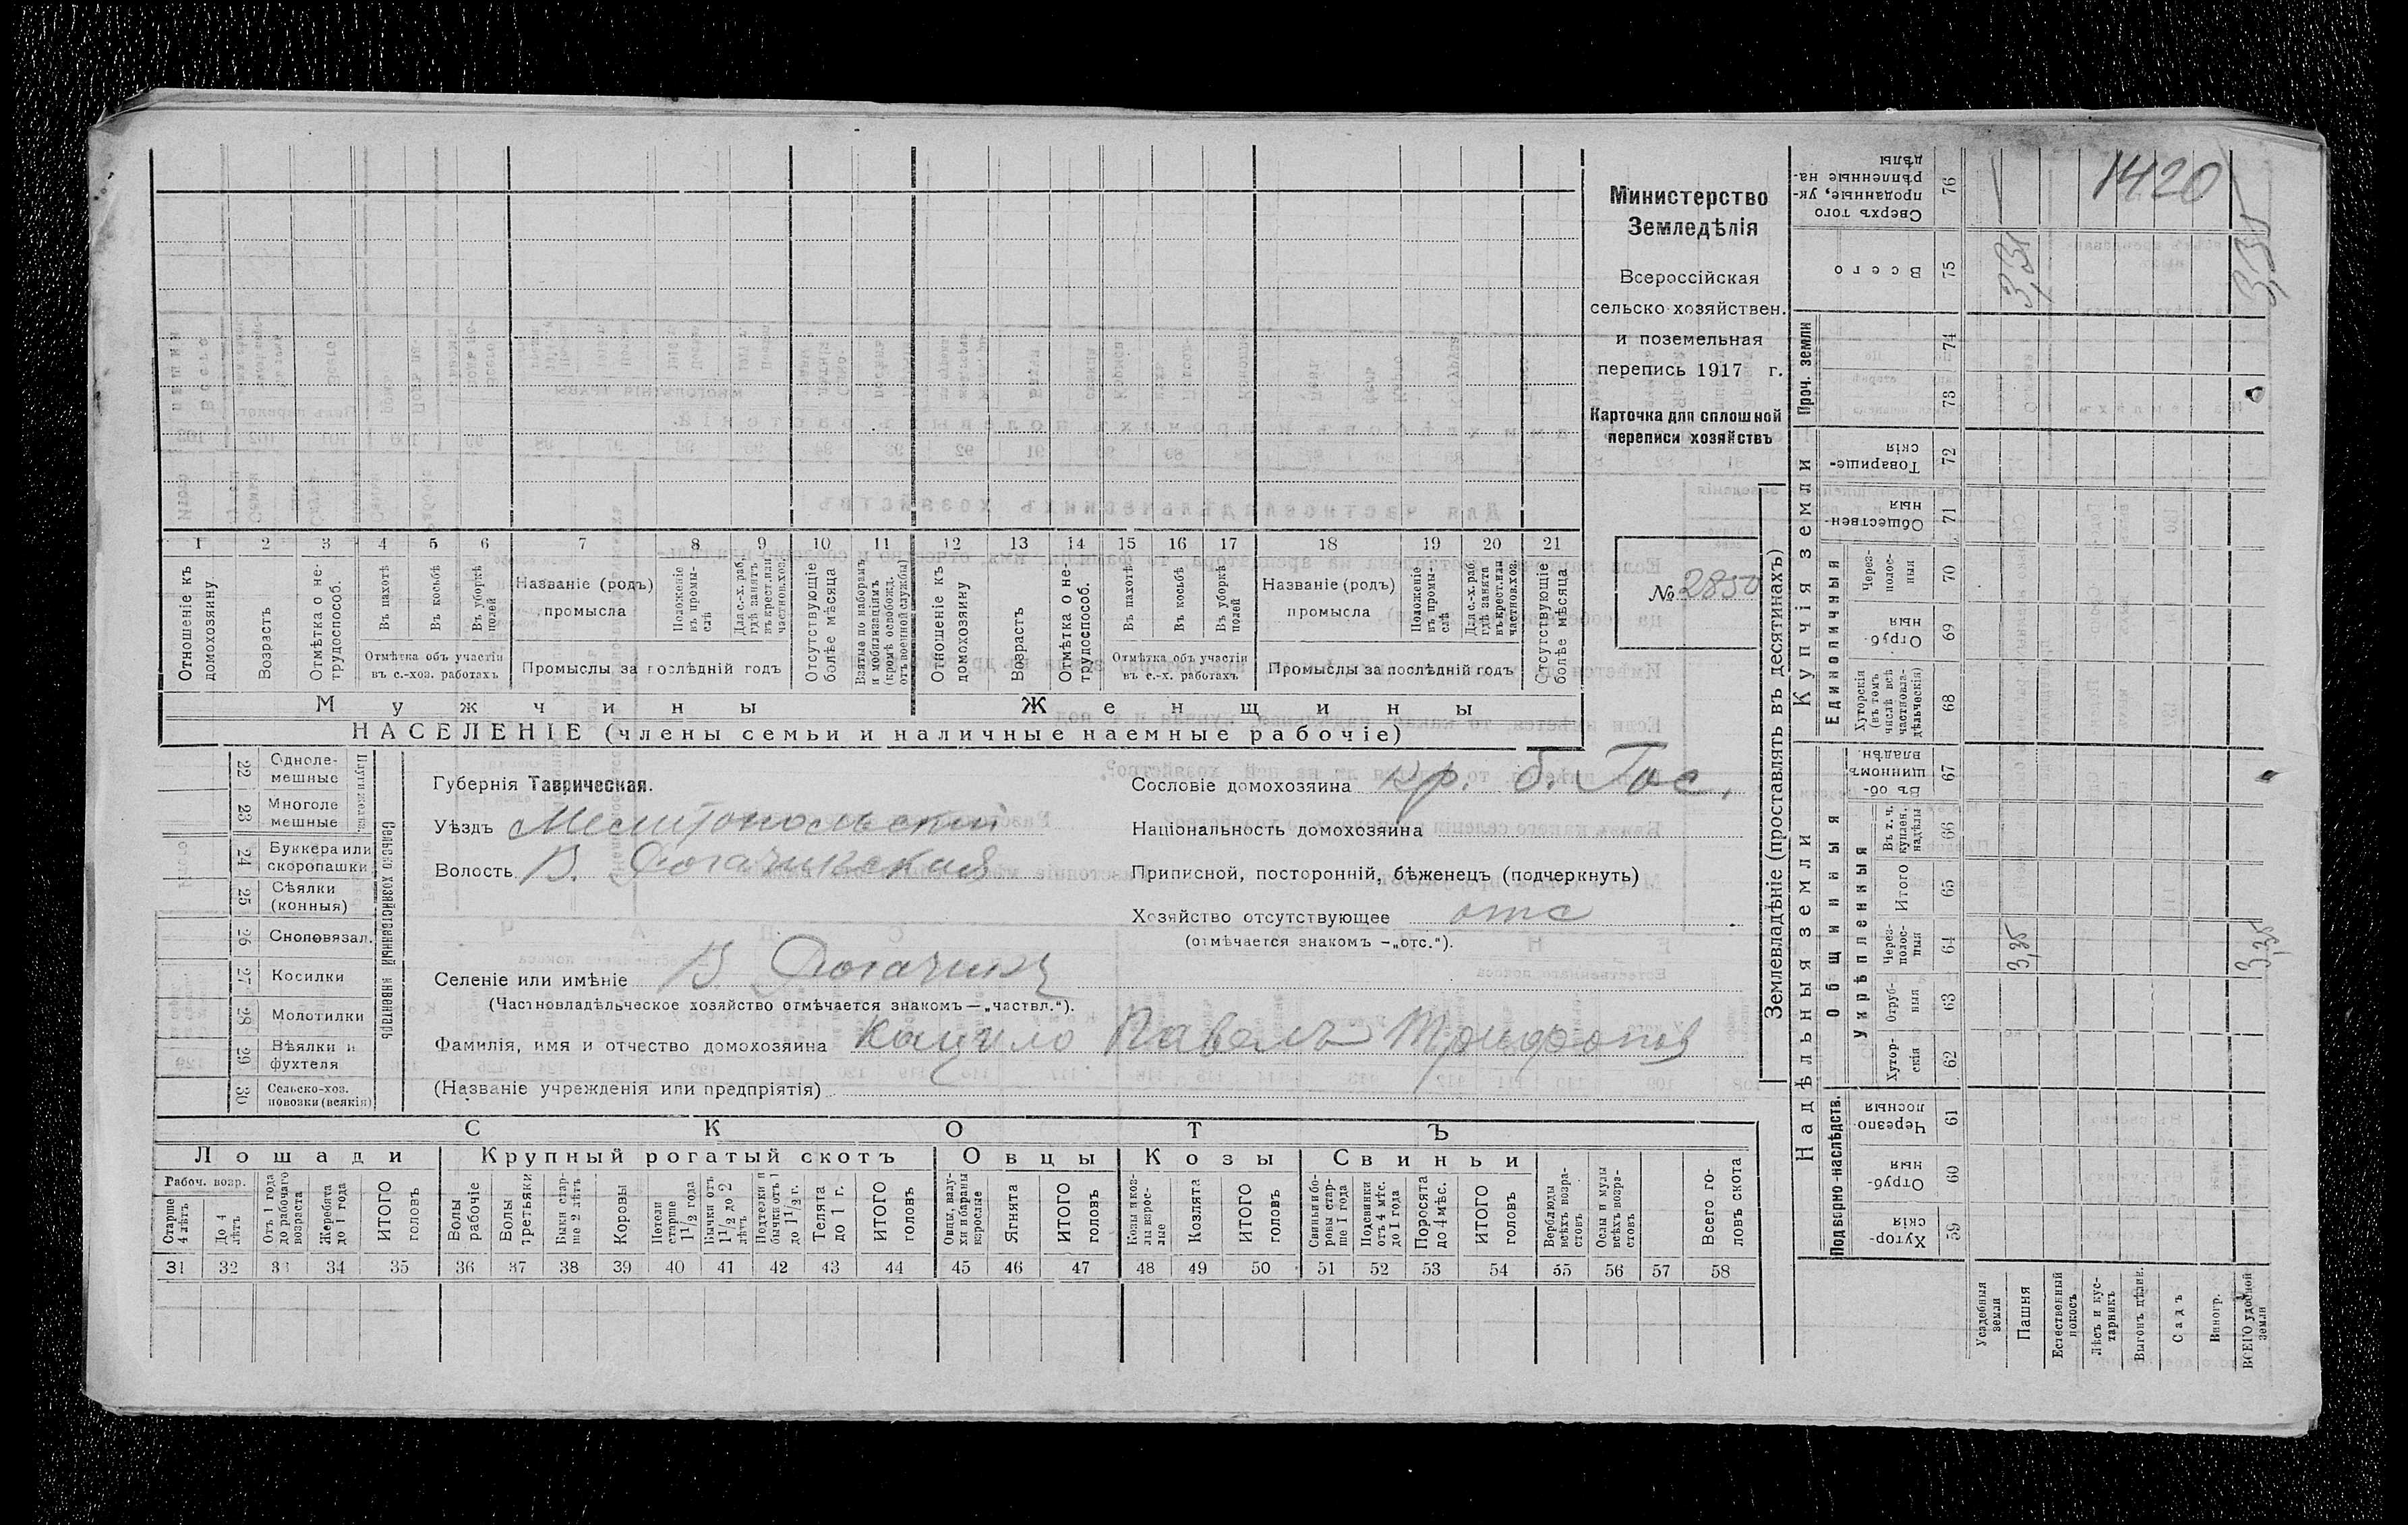 1420
Министерство
Земледѣлія
Всероссійская
сельско-хозяйствен.
и поземельная
перепись 1917 г.
Карточка для сплошной
переписи хозяйствъ
№ 2850
1 2 3 4 5 6 7 8 9 10 11 12 13 14 15 16 17 18 19 20 21
Отношеніе къ домохозяину
Возрастъ
Отмѣтка о нетрудоспособ.
Въ пахотѣ
Въ косьбѣ
Въ уборкѣ полей
Отмѣтка объ участіи въ с.-хоз. работахъ
Названіе (родъ) промысла
Положеніе въ промыслѣ
Для с.-х. раб. гдѣ занятъ въ крест. или частнов. хоз.
Промыслы за послѣдній годъ
Отсутствующіе болѣе мѣсяца
Взятые по наборамъ и мобилизаціямъ (кромѣ освобожд. отъ военной службы)
Отношеніе къ домохозяину
Возрастъ
Отмѣтка о нетрудоспособ.
Въ пахотѣ
Въ косьбѣ
Въ уборкѣ полей
Отмѣтка объ участіи въ с.-х. работахъ
Названіе (родъ) промысла
Положеніе въ промыслѣ
Для с.-х. раб. гдѣ занята въ крест. или частнов. хоз.
Промыслы за послѣдній годъ
Отсутствующіе болѣе мѣсяца
Мужчины
Женщины
НАСЕЛЕНІЕ (члены семьи и наличные наемные рабочіе)
22 Однолемешные
23 Многолемешные
24 Буккера или скоропашки
25 Сѣялки (конныя)
26 Сноповязал.
27 Косилки
28 Молотилки
29 Вѣялки и фухтеля
30 Сельско-хоз. повозки (всякія)
Сельско хозяйственный инвентарь
Губернія Таврическая.
Уѣздъ Мелитопольскій
Волость В. Рогачикская
Селеніе или имѣніе В Рогачикъ
(Частновладѣльческое хозяйство отмѣчается знакомъ — „частвл.“).
Фамилія, имя и отчество домохозяина Кацило Павелъ Трифонов
(Названіе учрежденія или предпріятія)
Сословіе домохозяина кр. б. Гос.
Національность домохозяина
Приписной, посторонній, бѣженецъ (подчеркнуть)
Хозяйство отсутствующее отс
(отмѣчается знакомъ —„отс.“).
СКОТЪ
Лошади
Крупный рогатый скотъ
Овцы
Козы
Свиньи
Рабоч. возр.
Старше 4 лѣтъ
До 4 лѣтъ
Отъ 1 года до рабочаго возраста
Жеребята до 1 года
ИТОГО головъ
Волы рабочіе
Волы третьяки
Быки старше 2 лѣтъ
Коровы
Нетели старше 1½ года
Бычки отъ 1½ до 2 лѣтъ
Подтелки и бычки отъ 1 до 1½ г.
Телята до 1 г.
ИТОГО головъ
Овцы, валухи и бараны взрослые
Ягнята
ИТОГО головъ
Козы и козлы взрослые
Козлята
ИТОГО головъ
Свиньи и боровы старше 1 года
Подсвинки отъ 4 мѣс. до 1 года
Поросята до 4 мѣс.
ИТОГО головъ
Верблюды всѣхъ возрастовъ
Ослы и мулы всѣхъ возрастовъ
Всего головъ скота
31 32 33 34 35 36 37 38 39 40 41 42 43 44 45 46 47 48 49 50 51 52 53 54 55 56 57 58
Землевладѣніе (проставлять въ десятинахъ)
Надѣльныя земли
Купчія земли
Проч. земли
Подворно-наслѣдств.
Общинныя
Укрѣпленныя
Единоличныя
Хуторскія 59
Отрубныя 60
Черезполосныя 61
Хуторскія 62
Отрубныя 63
Черезполосныя 64
Итого 65
Въ т. ч. куплен. надѣлы 66
Въ общинномъ владѣн 67
Хуторскія (въ томъ числѣ всѣ частновладѣльческія) 68
Отрубныя 69
Черезполосныя 70
Общественныя 71
Товарищескія 72
73
74
Всего 75
Сверхъ того проданные, укрѣпленные надѣлы 76
Усадебныя земли
Пашня
Естественный покосъ
Лѣсъ и кустарникъ
Выгонъ цѣлин.
Садъ
Виногр.
ВСЕГО удобной земли
3,35
3,35
3,35